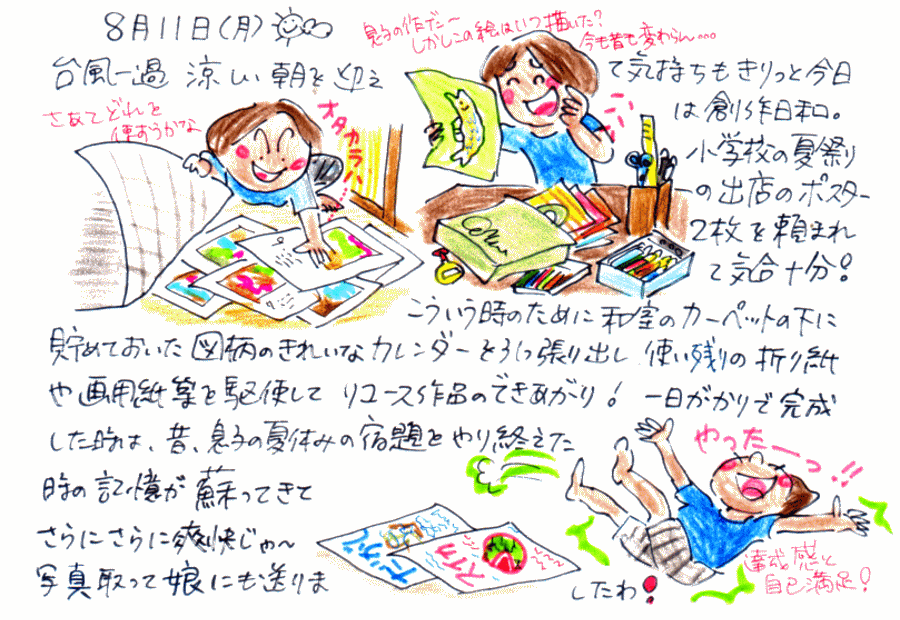 8月11日(月)
台風一過 涼しい朝を迎え
て気持ちもきりっと今日
は創作日和。
小学校の夏祭り
の出店のポスター
2枚を頼まれ
て気合十分!
さあて どれを
使おうかな
オタカラ
息子の作だ〜
しかしこの絵はいつ描いた?
今も昔も変わらん…
こういう時のために 和室のカーペットの下に
貯めておいた 図柄のきれいなカレンダーをひっ張り出し 使い残りの 折り紙
や画用紙等を駆使して リユース作品のできあがり! 一日がかりで完成
した時は、昔、息子の夏休みの宿題をやり終えた
時の記憶が蘇ってきて
さらにさらに爽快じゃ〜
写真取って娘にも送りま
したわ!
やったーっ!!
達成感と
自己満足!
だがし
スイカ